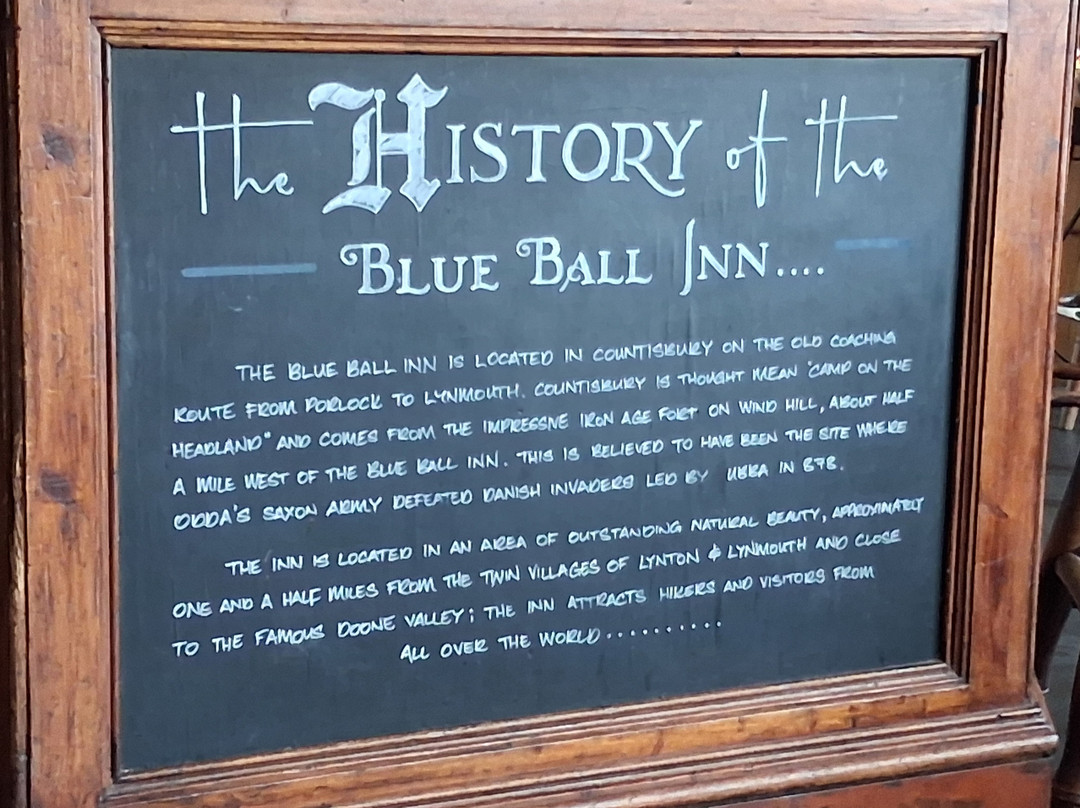 the HISTORY of the
BLUE BALL INN....
THE BLUE BALL INN IS LOCATED IN COUNTISBURY ON THE OLD COACHING
ROUTE FROM PORLOCK TO LYNMOUTH. COUNTISBURY IS THOUGHT MEAN "CAMP ON THE
HEADLAND" AND COMES FROM THE IMPRESSIVE IRON AGE FORT ON WIND HILL, ABOUT HALF
A MILE WEST OF THE BLUE BALL INN. THIS IS BELIEVED TO HAVE BEEN THE SITE WHERE
ODDA'S SAXON ARMY DEFEATED DANISH INVADERS LED BY UBBA IN 878.
THE INN IS LOCATED IN AN AREA OF OUTSTANDING NATURAL BEAUTY, APPROXIMATELY
ONE AND A HALF MILES FROM THE TWIN VILLAGES OF LYNTON & LYNMOUTH AND CLOSE
TO THE FAMOUS DOONE VALLEY; THE INN ATTRACTS HIKERS AND VISITORS FROM
ALL OVER THE WORLD..........